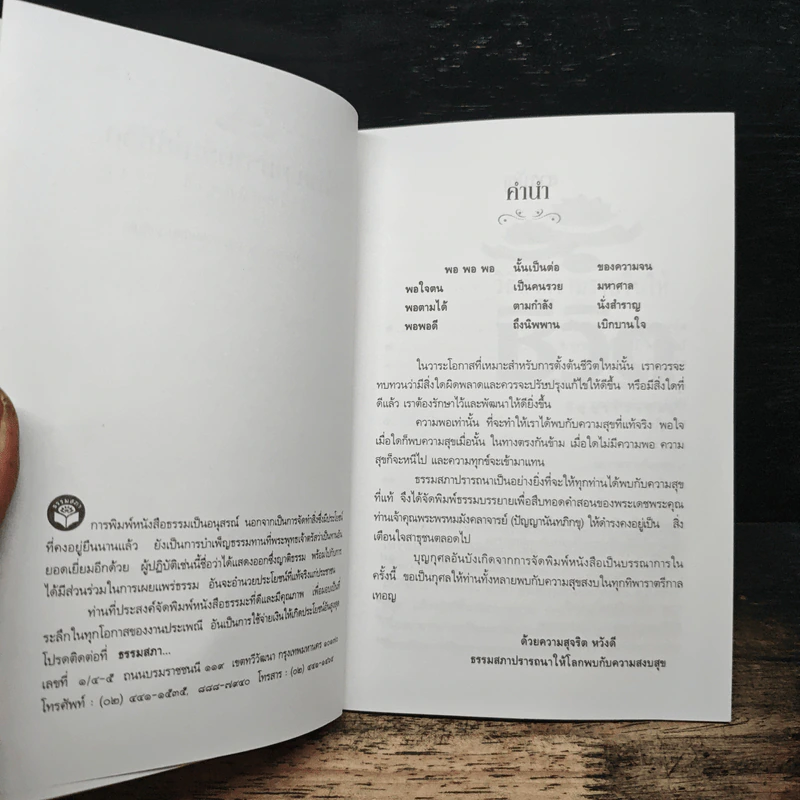 ธรรมสภา
การพิมพ์หนังสือธรรมเป็นอนุสรณ์ นอกจากเป็นการจัดทำสิ่งซึ่งมีประโยชน์
ที่คงอยู่ยืนนานแล้ว ยังเป็นการบำเพ็ญธรรมทานที่พระพุทธเจ้าตรัสว่าเป็นทานอัน
ยอดเยี่ยมอีกด้วย ผู้ปฏิบัติเช่นนี้ชื่อว่าได้แสดงออกซึ่งญาติธรรม พร้อมไปกับการ
ได้มีส่วนร่วมในการเผยแพร่ธรรม อันจะอำนวยประโยชน์ที่แท้จริงแก่ประชาชน
ท่านที่ประสงค์จัดพิมพ์หนังสือธรรมะที่ดีและมีคุณภาพ เพื่อมอบเป็นที่
ระลึกในทุกโอกาสของงานประเพณี อันเป็นการใช้จ่ายเงินให้เกิดประโยชน์อันสูงสุด
โปรดติดต่อที่ ธรรมสภา...
เลขที่ ๑/๔-๕ ถนนบรมราชชนนี ๑๑๙ เขตทวีวัฒนา กรุงเทพมหานคร ๑๐๑๗๐
โทรศัพท์ : (๐๒) ๔๔๑-๑๕๓๕, ๘๘๘-๗๙๔๐ โทรสาร : (๐๒) ๔๔๑-๑๙๑๙
คำนำ
พอ พอ พอ นั้นเป็นต่อ ของความจน
พอใจตน เป็นคนรวย มหาศาล
พอตามได้ ตามกำลัง นั่งสำราญ
พอพอดี ถึงนิพพาน เบิกบานใจ
ในวาระโอกาสที่เหมาะสำหรับการตั้งต้นชีวิตใหม่นั้น เราควรจะ
ทบทวนว่ามีสิ่งใดผิดพลาดและควรจะปรับปรุงแก้ไขให้ดีขึ้น หรือมีสิ่งใดที่
ดีแล้ว เราต้องรักษาไว้และพัฒนาให้ดียิ่งขึ้น
ความพอเท่านั้น ที่จะทำให้เราได้พบกับความสุขที่แท้จริง พอใจ
เมื่อใดก็พบความสุขเมื่อนั้น ในทางตรงกันข้าม เมื่อใดไม่มีความพอ ความ
สุขก็จะหนีไป และความทุกข์จะเข้ามาแทน
ธรรมสภาปรารถนาเป็นอย่างยิ่งที่จะให้ทุกท่านได้พบกับความสุข
ที่แท้ จึงได้จัดพิมพ์ธรรมบรรยายเพื่อสืบทอดคำสอนของพระเดชพระคุณ
ท่านเจ้าคุณพระพรหมมังคลาจารย์ (ปัญญานันทภิกขุ) ให้ดำรงคงอยู่เป็น สิ่ง
เตือนใจสาธุชนตลอดไป
บุญกุศลอันบังเกิดจากการจัดพิมพ์หนังสือเป็นบรรณาการใน
ครั้งนี้ ขอเป็นกุศลให้ท่านทั้งหลายพบกับความสุขสงบในทุกทิพาราตรีกาล
เทอญ
ด้วยความสุจริต หวังดี
ธรรมสภาปรารถนาให้โลกพบกับความสงบสุข